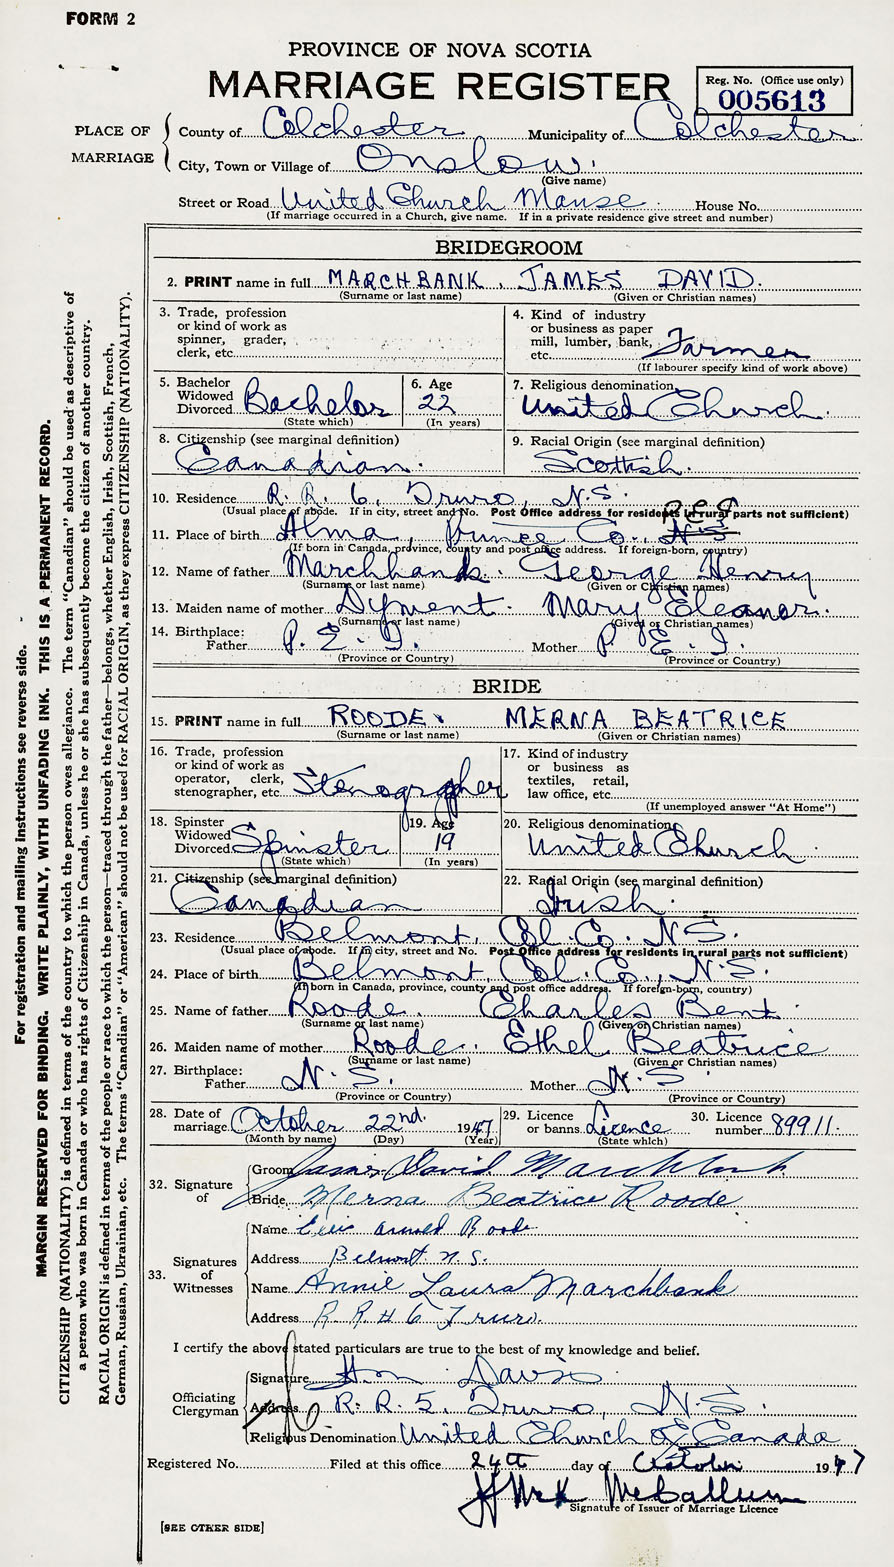 FORM 2
PROVINCE OF NOVA SCOTIA
MARRIAGE REGISTER
Reg. No. (Office use only)
005613
PLACE OF MARRIAGE
County of Colchester Municipality of Colchester
City, Town or Village of Onslow.
(Give name)
Street or Road United Church Manse House No.
(If marriage occurred in a Church, give name. If in a private residence give street and number)
BRIDEGROOM
2. PRINT name in full MARCHBANK, JAMES DAVID.
(Surname or last name) (Given or Christian names)
3. Trade, profession or kind of work as spinner, grader, clerk, etc.
4. Kind of industry or business as paper mill, lumber, bank, etc. Farmer
(If labourer specify kind of work above)
5. Bachelor Widowed Divorced Bachelor
(State which)
6. Age 22
(In years)
7. Religious denomination United Church.
8. Citizenship (see marginal definition)
Canadian.
9. Racial Origin (see marginal definition)
Scottish.
10. Residence R. R. 6, Truro, N.S.
(Usual place of abode. If in city, street and No. Post Office address for residents in rural parts not sufficient)
11. Place of birth Alma, Prince Co., N.S. P.E.I
(If born in Canada, province, county and post office address. If foreign-born, country)
12. Name of father Marchbank. George Henry
(Surname or last name) (Given or Christian names)
13. Maiden name of mother Dyment. Mary Eleanor.
(Surname or last name) (Given or Christian names)
14. Birthplace:
Father P. E. I. Mother P. E. I.
(Province or Country) (Province or Country)
BRIDE
15. PRINT name in full ROODE, MERNA BEATRICE
(Surname or last name) (Given or Christian names)
16. Trade, profession or kind of work as operator, clerk, stenographer, etc. Stenographer
17. Kind of industry or business as textiles, retail, law office, etc.
(If unemployed answer "At Home")
18. Spinster Widowed Divorced Spinster
(State which)
19. Age 19
(In years)
20. Religious denomination United Church.
21. Citizenship (see marginal definition)
Canadian
22. Racial Origin (see marginal definition)
Irish.
23. Residence Belmont, Col. Co. N.S.
(Usual place of abode. If in city, street and No. Post Office address for residents in rural parts not sufficient)
24. Place of birth Belmont, Col. Co., N.S.
(If born in Canada, province, county and post office address. If foreign-born, country)
25. Name of father Roode. Charles Bent
(Surname or last name) (Given or Christian names)
26. Maiden name of mother Roode. Ethel Beatrice
(Surname or last name) (Given or Christian names)
27. Birthplace:
Father N.S. Mother N.S.
(Province or Country) (Province or Country)
28. Date of marriage October 22nd. 1947
(Month by name) (Day) (Year)
29. Licence or banns Licence
(State which)
30. Licence number 89911.
32. Signature of
Groom James David Marchbank
Bride Merna Beatrice Roode
33. Signatures of Witnesses
Name Arnold Roode
Address Belmont N.S.
Name Annie Laura Marchbank
Address R R # 6 Truro.
I certify the above stated particulars are true to the best of my knowledge and belief.
Officiating Clergyman
Signature Davis
Address R. R. 5, Truro, N.S.
Religious Denomination United Church of Canada
Registered No. Filed at this office 24th day of October 1947
McCallum
Signature of Issuer of Marriage Licence
[SEE OTHER SIDE]
For registration and mailing instructions see reverse side.
MARGIN RESERVED FOR BINDING. WRITE PLAINLY, WITH UNFADING INK. THIS IS A PERMANENT RECORD.
CITIZENSHIP (NATIONALITY) is defined in terms of the country to which the person owes allegiance. The term "Canadian" should be used as descriptive of
a person who was born in Canada or who has rights of Citizenship in Canada, unless he or she has subsequently become the citizen of another country.
RACIAL ORIGIN is defined in terms of the people or race to which the person—traced through the father—belongs, whether English, Irish, Scottish, French,
German, Russian, Ukrainian, etc. The terms "Canadian" or "American" should not be used for RACIAL ORIGIN, as they express CITIZENSHIP (NATIONALITY).